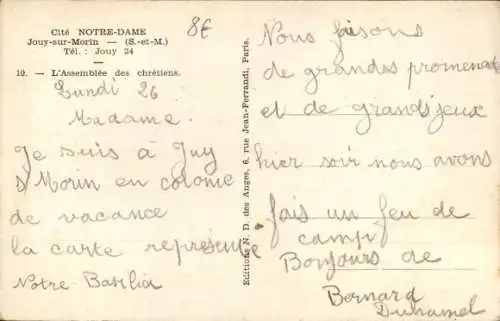 Cité NOTRE-DAME
Jouy-sur-Morin — (S.-et-M.)
Tél. : Jouy 24
—
19. — L'Assemblée des chrétiens.
8€
Lundi 26
Madame.
Je suis à Juy
s Morin en colonie
de vacance
la carte represente
Notre Basilia
Editions N. D. des Anges, 6, rue Jean-Ferrandi, Paris.
Nous faisons
de grandes promenade
et de grandsjeux
hier soir nous avons
fais un feu de
camp
Bonjours de
Bernard
Duhamel